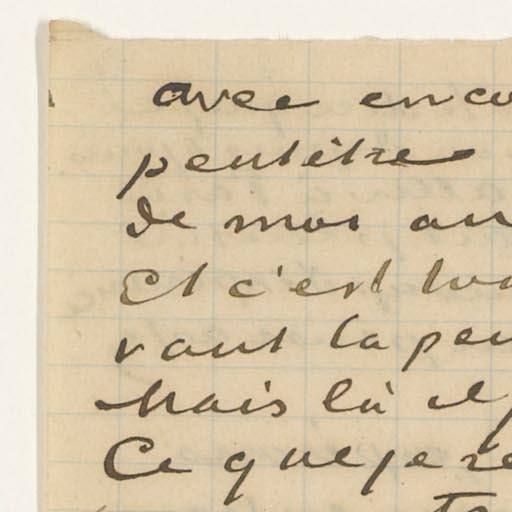 avec enco
peut être
de mos an
Et c'est
vaut la peu
Mais là il
Ce que je re